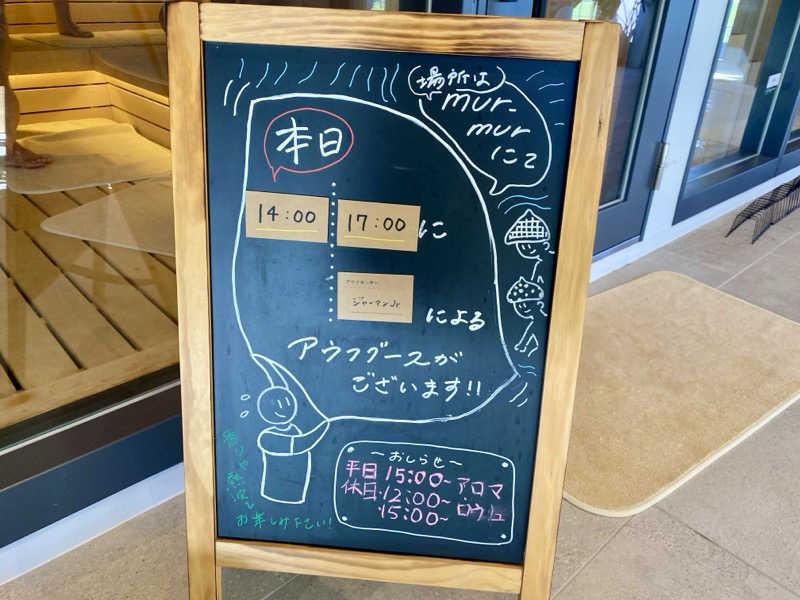 場所は
mur-
murにて
本日
14:00 17:00に
アウフギーサー
ジャーマンJr
による
アウフグースが
ございます!!
香りや熱波を
お楽しみ下さい!
〜おしらせ〜
平日 15:00〜 アロマ
休日・12:00〜 ロウリュ
・15:00〜